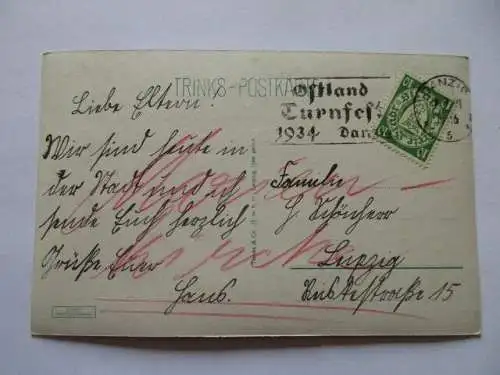 TRINKS-POSTKARTE
Ostland
Turnfest
1934 Danz
Liebe Eltern!
Wir sind heute in
der Stadt und ich
sende Euch herzlich
Grüße Euer
Hans.
Familie
H. Schönherr
Leipzig
straße 15